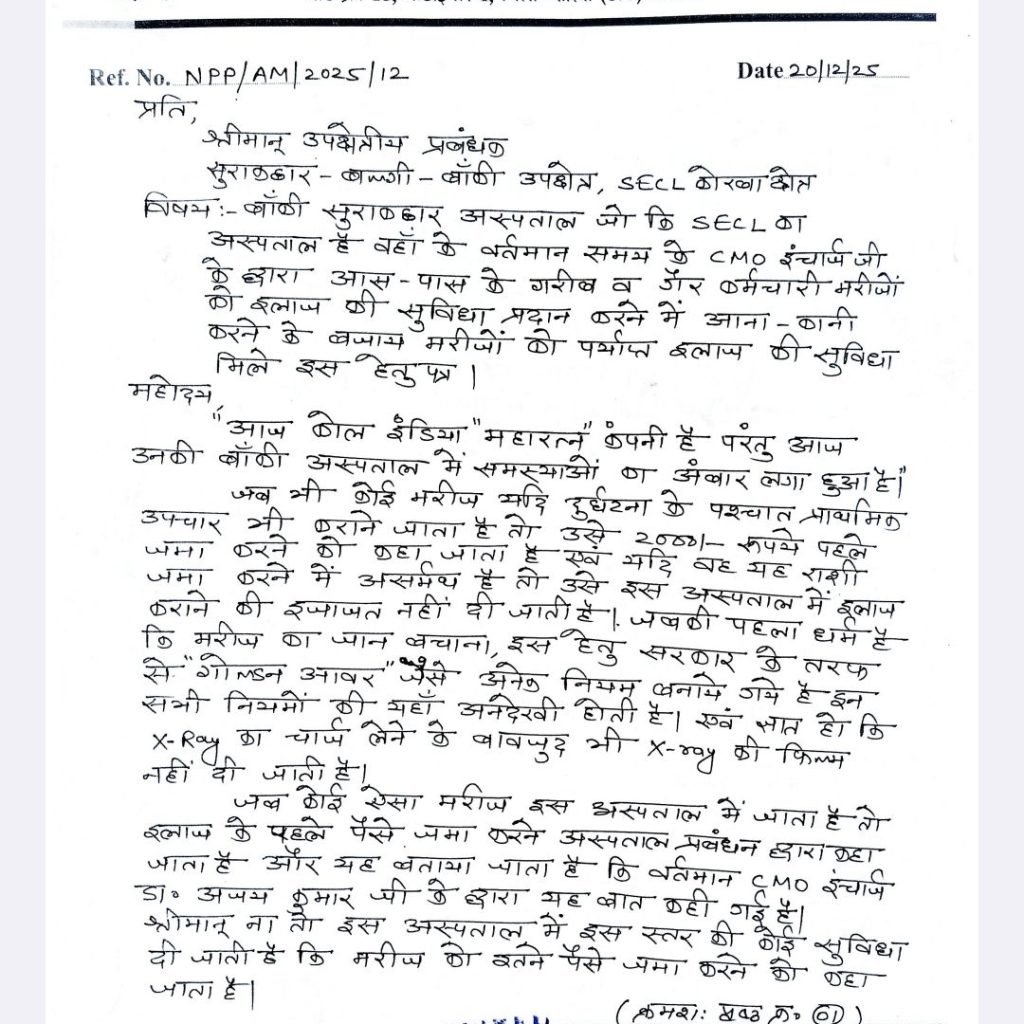 Ref. No. NPP/AM/2025/12
Date 20/12/25
प्रति,
श्रीमान् उपक्षेत्रीय प्रबंधक
सुराकछार - बल्गी - बाँकी उपक्षेत्र, SECL कोरबा क्षेत्र
विषय :- बाँकी सुराकछार अस्पताल जो कि SECL का
अस्पताल है वहाँ के वर्तमान समय के CMO इंचार्ज जी
के द्वारा आस-पास के गरीब व गैर कर्मचारी मरीजों
को इलाज की सुविधा प्रदान करने में आना-कानी
करने के बजाय मरीजों को पर्याप्त इलाज की सुविधा
मिले इस हेतु पत्र |
महोदय,
"आज कोल इंडिया "महारत्न" कंपनी है परंतु आज
उनकी बाँकी अस्पताल में समस्याओं का अंबार लगा हुआ है|"
जब भी कोई मरीज यदि दुर्घटना के पश्चात प्राथमिक
उपचार भी कराने जाता है तो उसे 20000/- रूपये पहले
जमा करने को कहा जाता है एवं यदि वह यह राशी
जमा करने में असर्मथ है तो उसे इस अस्पताल में इलाज
कराने की इजाजत नहीं दी जाती है | जबकी पहला धर्म है
कि मरीज का जान बचाना, इस हेतु सरकार के तरफ
से "गोल्डन आवर" जैसे अनेक नियम बनाये गये है इन
सभी नियमों की यहाँ अनदेखी होती है| एवं ज्ञात हो कि
X-Ray का चार्ज लेने के बावजुद भी X-ray की फिल्म
नहीं दी जाती है|
जब कोई ऐसा मरीज इस अस्पताल में जाता है तो
इलाज के पहले पैसे जमा करने अस्पताल प्रबंधन द्वारा कहा
जाता है और यह बताया जाता है कि वर्तमान CMO इंचार्ज
डा॰ अजय कुमार जी के द्वारा यह बात कही गई है|
श्रीमान् ना तो इस अस्पताल में इस स्तर की कोई सुविधा
दी जाती है कि मरीज को इतने पैसे जमा करने को कहा
जाता है|
(क्रमशः पृष्ठ क्र॰ 01)